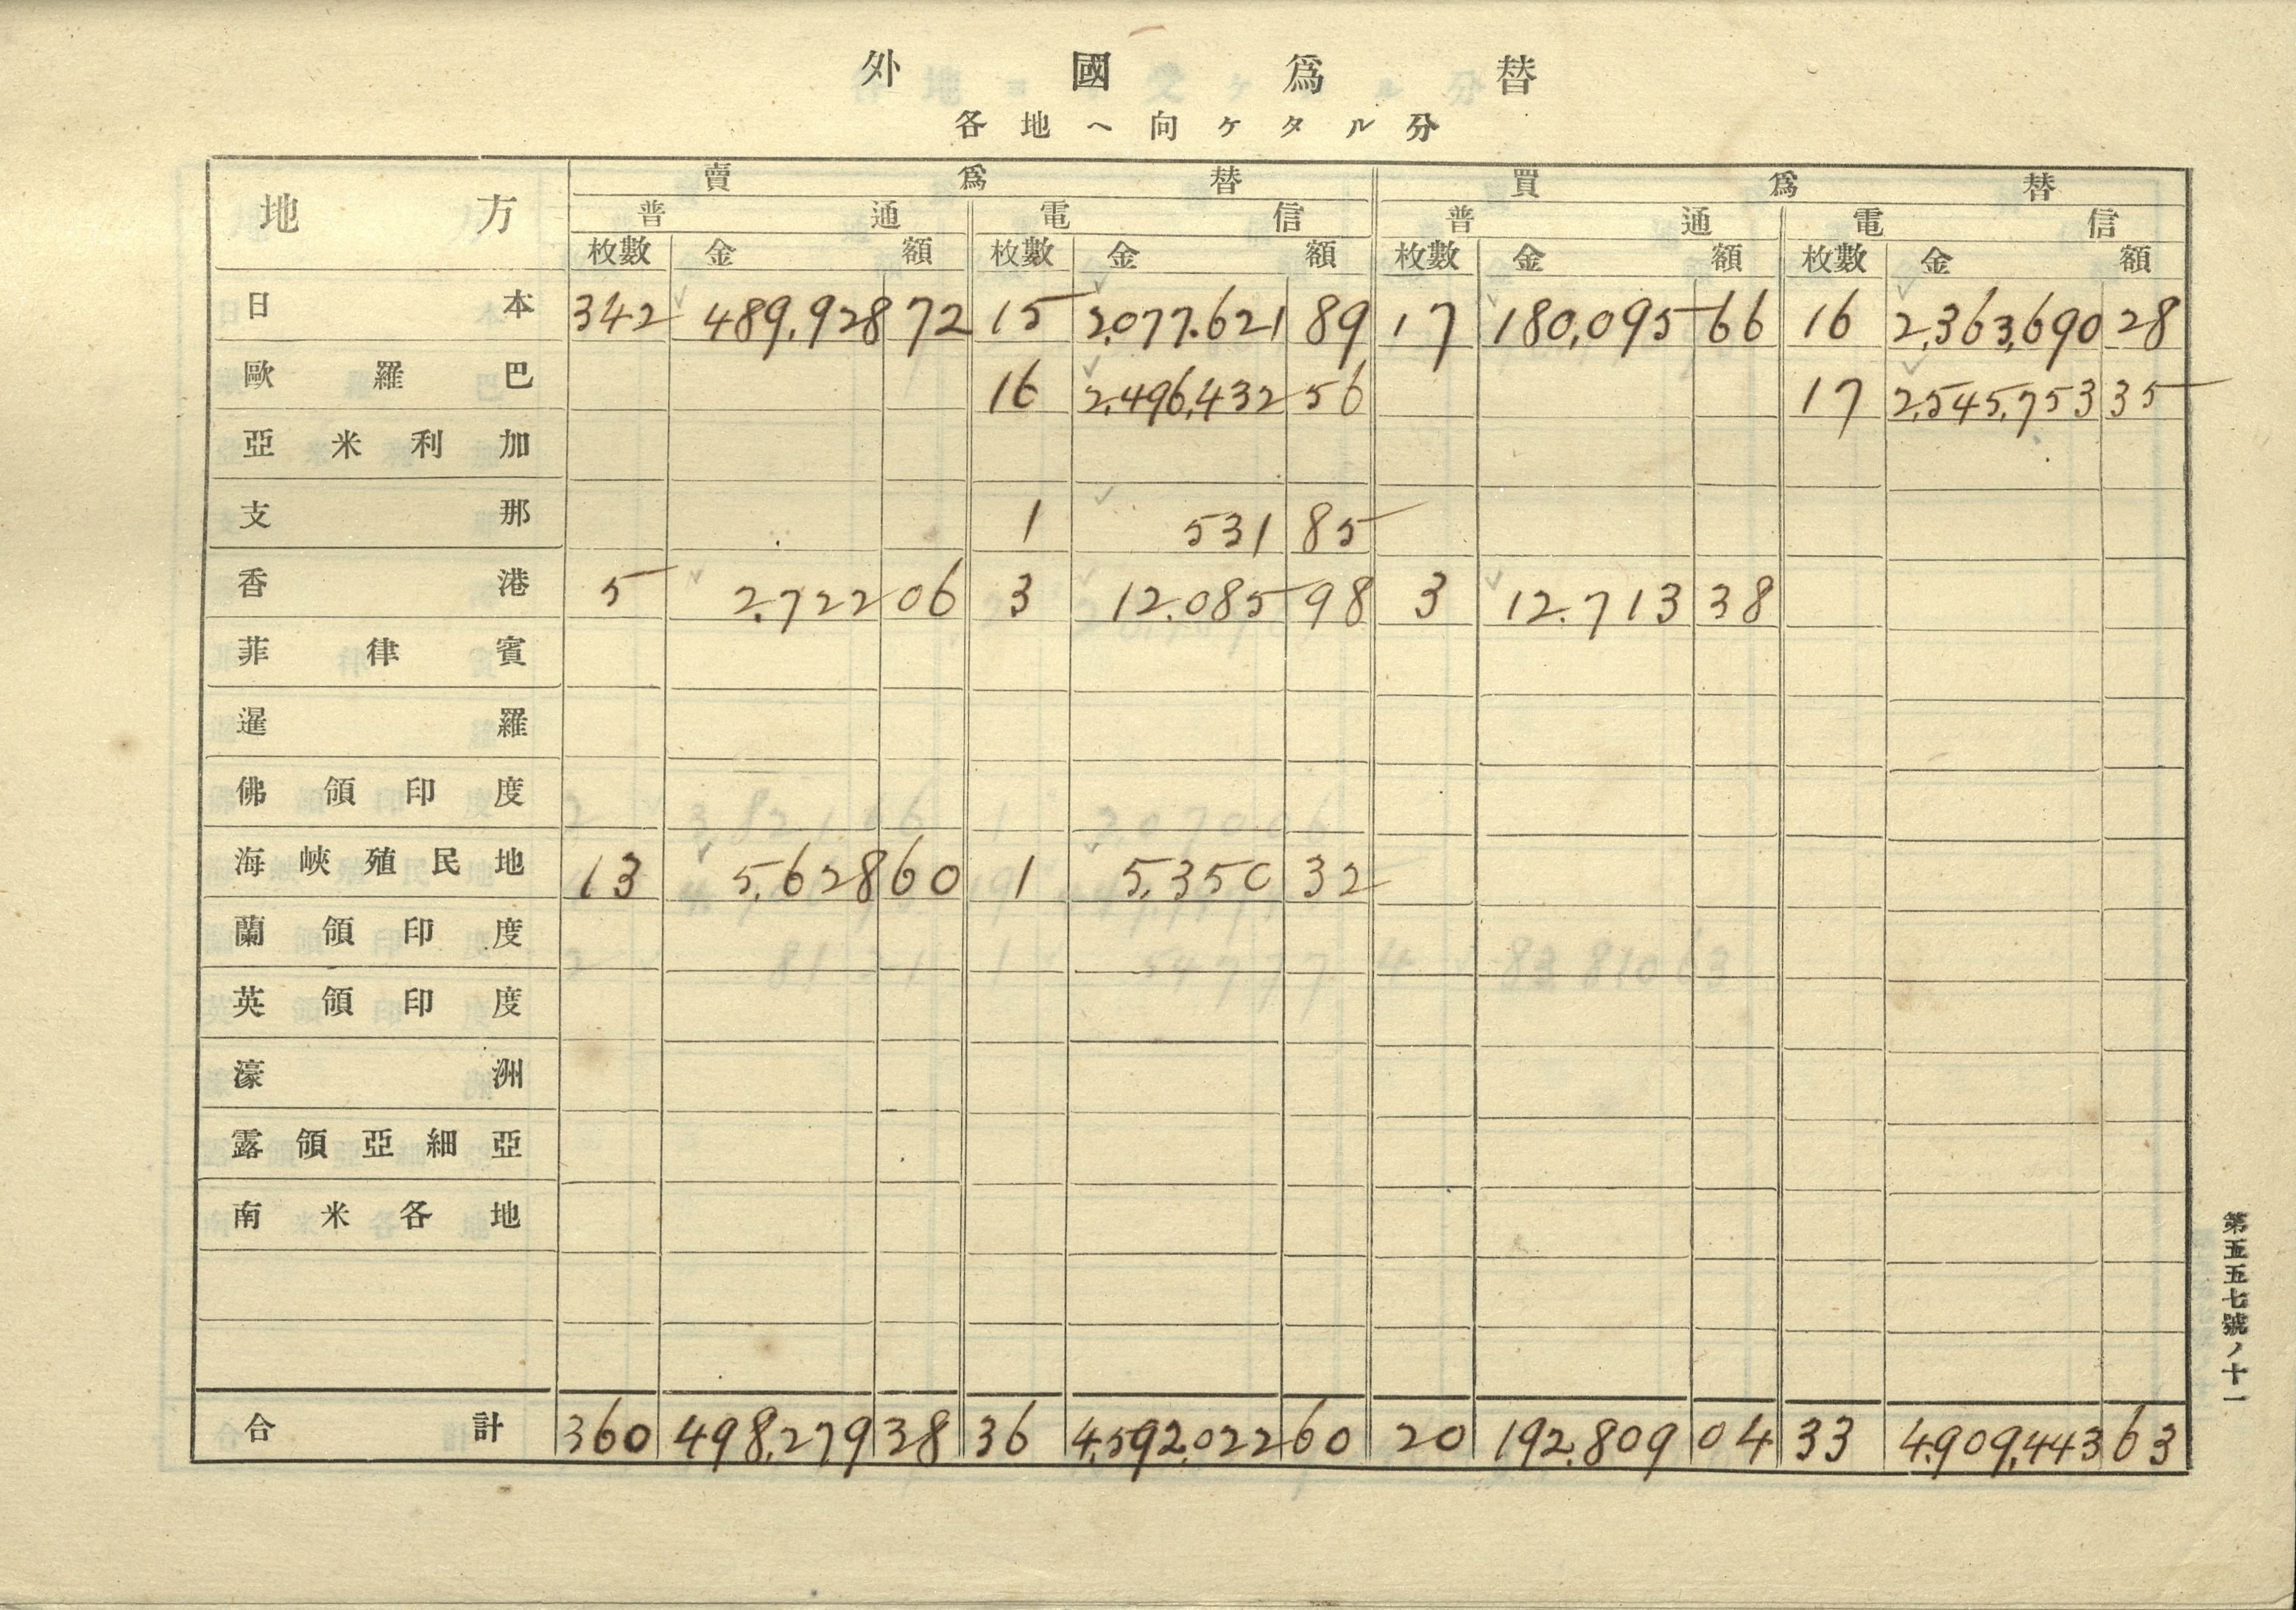 外國爲替
各地ヘ向ケタル分
地方 賣爲替 買爲替
普通 電信 普通 電信
枚數 金額 枚數 金額 枚數 金額 枚數 金額
日本 342 489,928 72 15 2,077.621 89 17 180,095 66 16 2,363,690 28
歐羅巴 16 2,496,432 56 17 2,545,753 35
亞米利加
支那 1 531 85
香港 5 2,722 06 3 12.085 98 3 12.713 38
菲律賓
暹羅
佛領印度
海峽殖民地 13 5,628 60 1 5,350 32
蘭領印度
英領印度
濠洲
露領亞細亞
南米各地
合計 360 498,279 38 36 4,592,022 60 20 192.809 04 33 4,909,443 63
第五五七號ノ十一